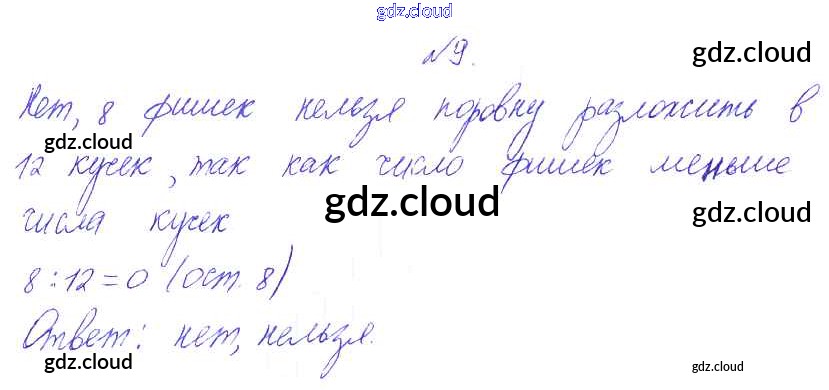 gdz.cloud
№9.
gdz.cloud
Нет, 8 фишек нельзя поровну разложить в
gdz.cloud
gdz.cloud
12 кучек, так как число фишек меньше
gdz.cloud
gdz.cloud
числа кучек
8:12=0 (ост. 8)
Ответ: нет, нельзя.
gdz.cloud
gdz.cloud